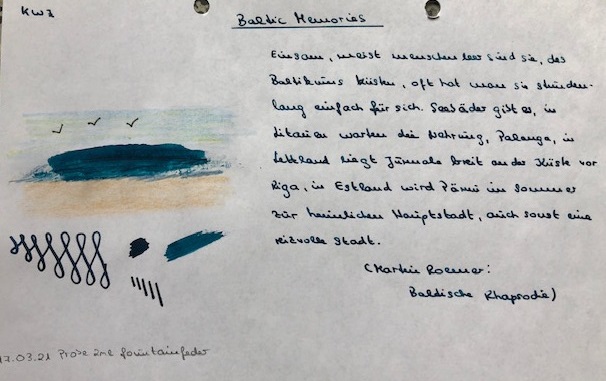 KWZ
Baltic Memories
Einsam, meist menschenleer sind sie, des
Baltikums Küsten, oft hat man sie stunden-
lang einfach für sich. Seebäder gibt es, in
Litauen warten die Nehrung, Palanga, in
Lettland liegt Jūrmala breit an der Küste vor
Riga, in Estland wird Pärnu im Sommer
zur heimlichen Hauptstadt, auch sonst eine
reizvolle Stadt.
(Martin Roemer:
Baltische Rhapsodie)
17.03.21 Probe 2ml fountainfeder